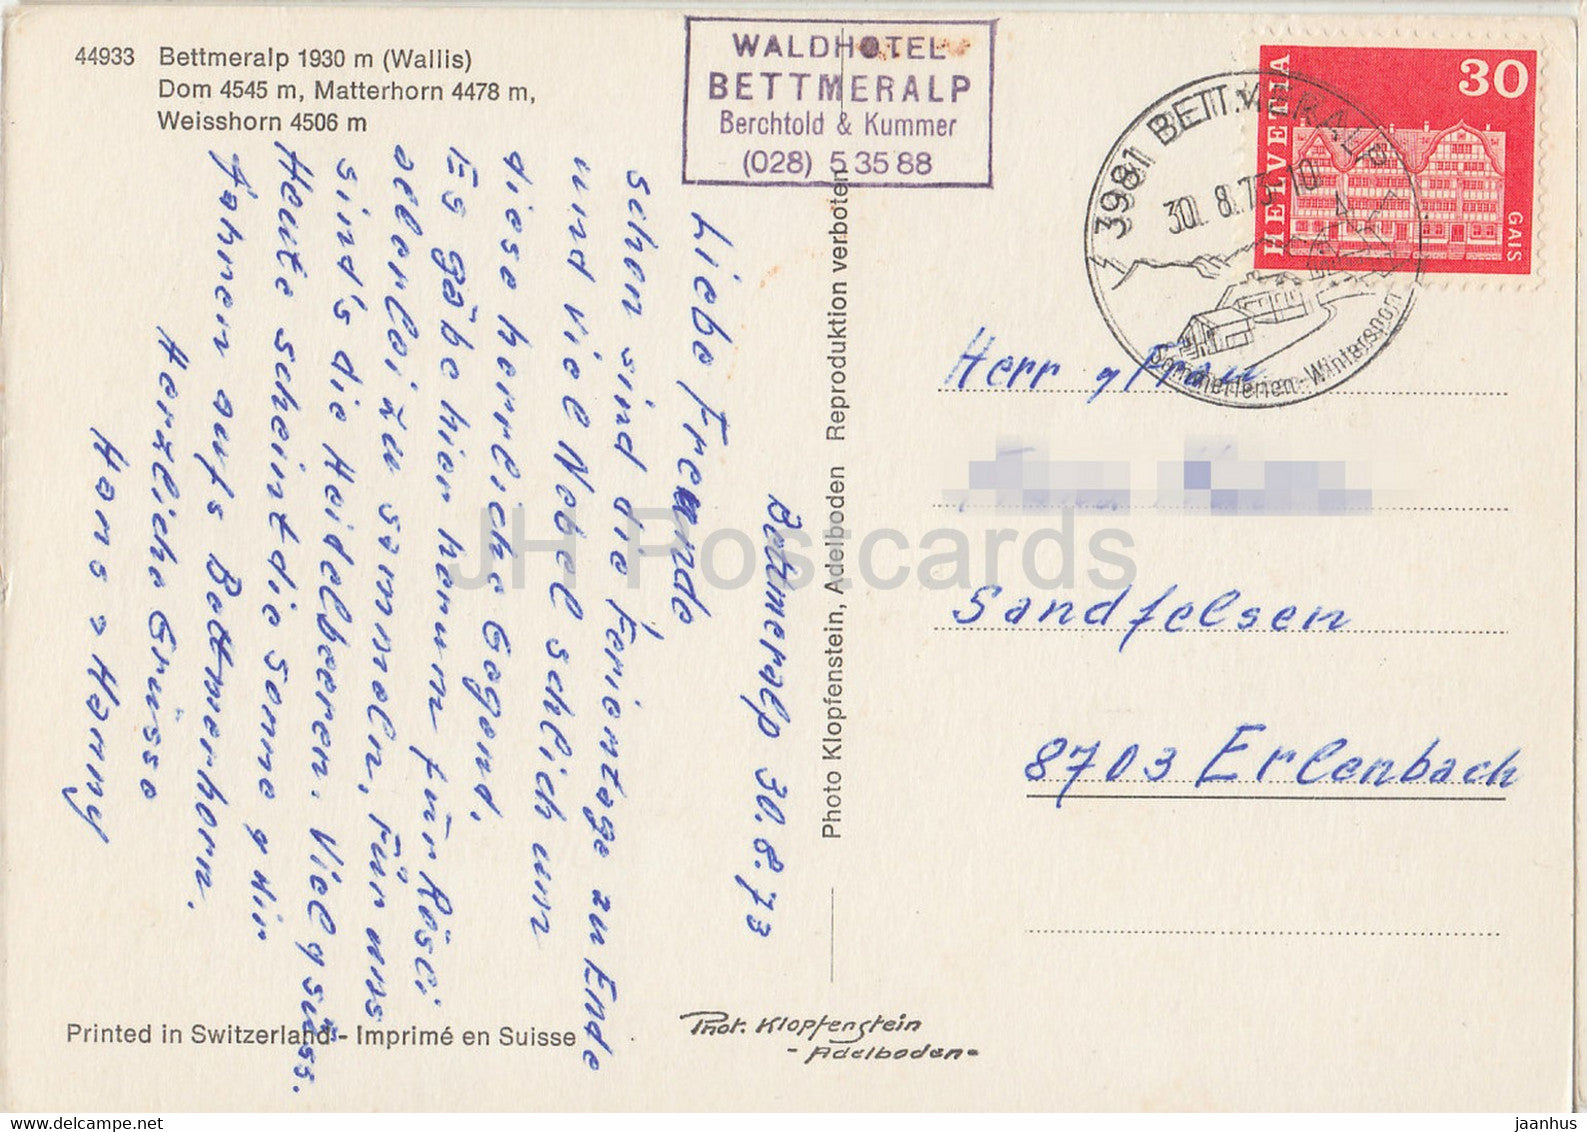 44933 Bettmeralp 1930 m (Wallis)
Dom 4545 m, Matterhorn 4478 m,
Weisshorn 4506 m
WALDHOTEL
BETTMERALP
Berchtold & Kummer
(028) 5 35 88
3981 BETTMERALP
30. 8. 73-10
Sommerferien-Wintersport
HELVETIA
30
GAIS
Bettmeralp 30.8.73
Liebe Freunde
schon sind die Ferientage zu Ende
und viel Nebel schlich um
diese herrliche Gegend.
Es gäbe hier herum für Rösli
allerlei zu sammeln, für uns
sind's die Heidelbeeren. Viel süss.
Heute scheint die Sonne & wir
fahren aufs Bettmerhorn.
Herzliche Grüsse
Hans & Hanny
Photo Klopfenstein, Adelboden Reproduktion verboten
Herr & Frau
Sandfelsen
8703 Erlenbach
Printed in Switzerland - Imprimé en Suisse
Phot. Klopfenstein
- Adelboden -
JH Postcards
jaanhus